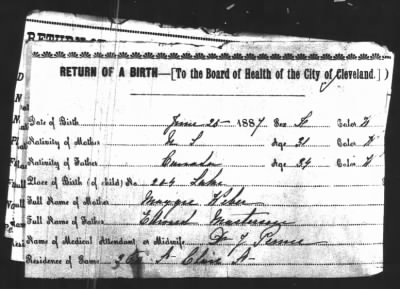 RETURN OF A BIRTH—[To the Board of Health of the City of Cleveland.]
Date of Birth June 25 1887 Sex Color W
Nativity of Mother U S Age 21 Color W
Nativity of Father Canada Age 24 Color W
Place of Birth (of child) No. 204 Lake
Full Name of Mother Maggie
Full Name of Father Edward Masterson
Name of Medical Attendant or Midwife Dr
Residence of Same